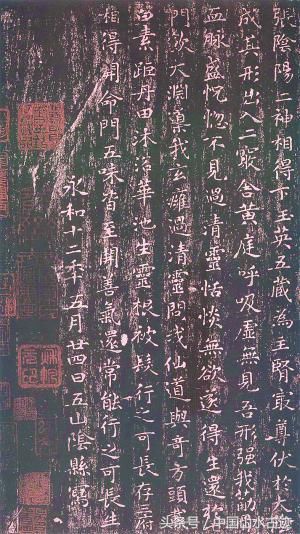 張陰陽二神相得下玉英五藏為主腎最尊伏於大
成其形出入二竅合黃庭呼吸虛無見吾形強我筋
血脈盛恍惚不見過清靈恬惔無欲遂得生還於
門飲大淵我玄癰過清靈問我仙道與奇方頭戴
白素距丹田沐浴華池生靈根被髮行之可長存
相得開命門五味皆至開善氣還常能行之可長生
永和十二年五月廿四日五山陰縣寫
头条号/中国山水古迹